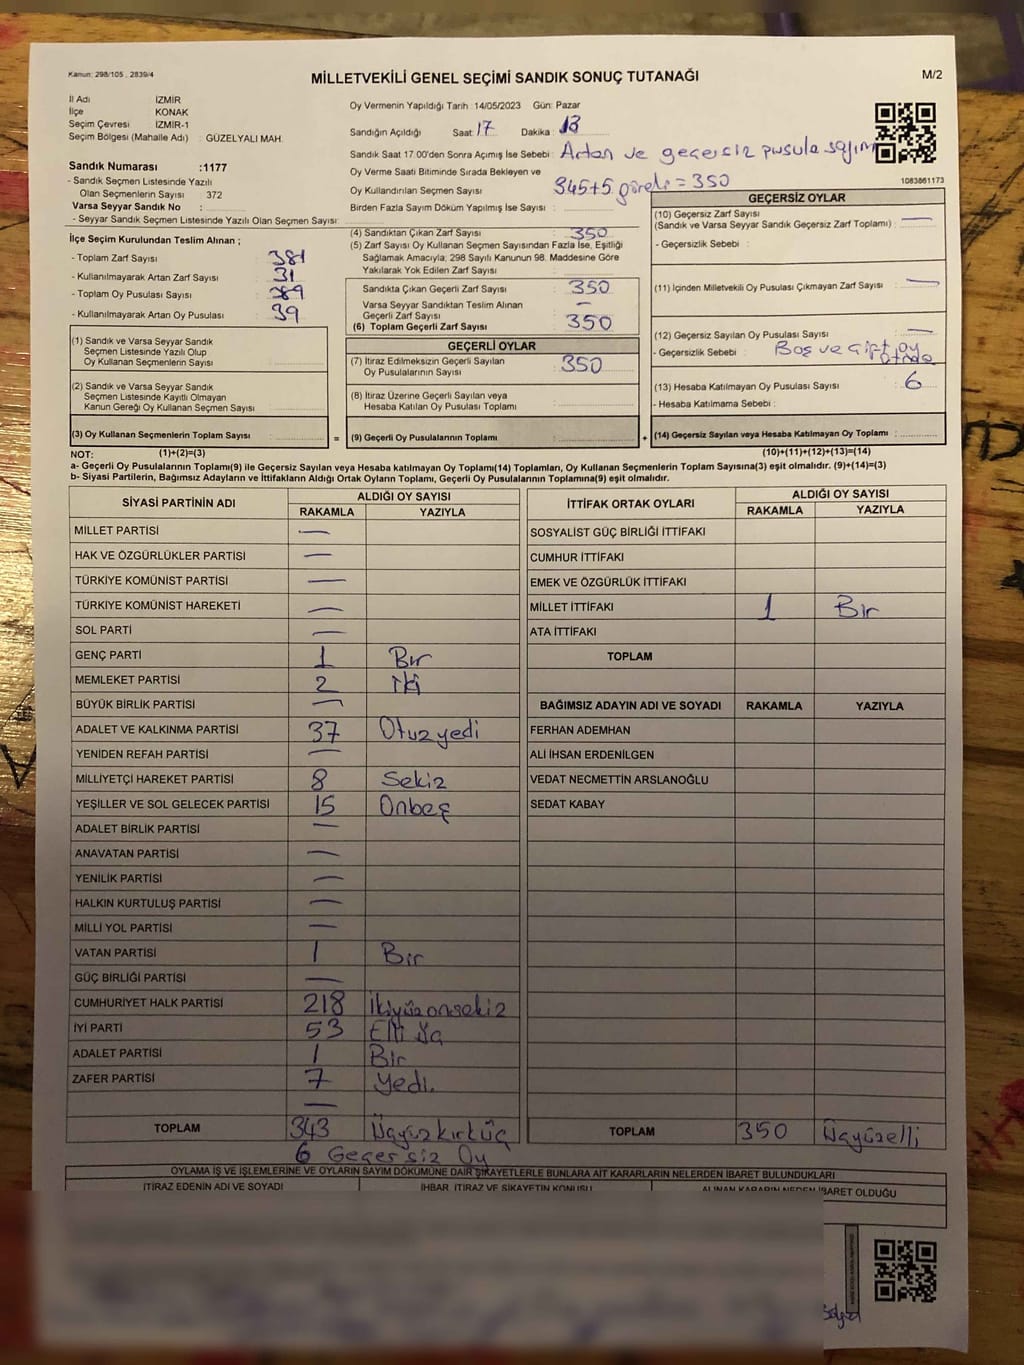 Kanun: 298/105 , 2839/4
MİLLETVEKİLİ GENEL SEÇİMİ SANDIK SONUÇ TUTANAĞI
M/2
İl Adı İZMİR
İlçe KONAK
Seçim Çevresi İZMİR-1
Seçim Bölgesi (Mahalle Adı) : GÜZELYALI MAH.
Sandık Numarası :1177
- Sandık Seçmen Listesinde Yazılı
Olan Seçmenlerin Sayısı : 372
Varsa Seyyar Sandık No :
- Seyyar Sandık Seçmen Listesinde Yazılı Olan Seçmen Sayısı:
Oy Vermenin Yapıldığı Tarih : 14/05/2023 Gün: Pazar
Sandığın Açıldığı Saat: 17 Dakika : 13
Sandık Saat 17:00'den Sonra Açımış İse Sebebi: Artan ve geçersiz pusula sayım
Oy Verme Saati Bitiminde Sırada Bekleyen ve
Oy Kullandırılan Seçmen Sayısı 345+5 görevli = 350
Birden Fazla Sayım Döküm Yapılmış İse Sayısı :
1083861173
İlçe Seçim Kurulundan Teslim Alınan ;
- Toplam Zarf Sayısı 381
- Kullanılmayarak Artan Zarf Sayısı 31
- Toplam Oy Pusulası Sayısı 389
- Kullanılmayarak Artan Oy Pusulası : 39
(1) Sandık ve Varsa Seyyar Sandık
Seçmen Listesinde Yazılı Olup
Oy Kullanan Seçmenlerin Sayısı :
(2) Sandık ve Varsa Seyyar Sandık
Seçmen Listesinde Kayıtlı Olmayan
Kanun Gereği Oy Kullanan Seçmen Sayısı :
(3) Oy Kullanan Seçmenlerin Toplam Sayısı :
(4) Sandıktan Çıkan Zarf Sayısı : 350
(5) Zarf Sayısı Oy Kullanan Seçmen Sayısından Fazla İse, Eşitliği
Sağlamak Amacıyla; 298 Sayılı Kanunun 98. Maddesine Göre
Yakılarak Yok Edilen Zarf Sayısı :
Sandıkta Çıkan Geçerli Zarf Sayısı : 350
Varsa Seyyar Sandıktan Teslim Alınan
Geçerli Zarf Sayısı : —
(6) Toplam Geçerli Zarf Sayısı : 350
GEÇERLİ OYLAR
(7) İtiraz Edilmeksizin Geçerli Sayılan
Oy Pusulalarının Sayısı : 350
(8) İtiraz Üzerine Geçerli Sayılan veya
Hesaba Katılan Oy Pusulası Toplamı :
= (9) Geçerli Oy Pusulalarının Toplamı :
GEÇERSİZ OYLAR
(10) Geçersiz Zarf Sayısı
(Sandık ve Varsa Seyyar Sandık Geçersiz Zarf Toplamı) : —
- Geçersizlik Sebebi :
(11) İçinden Milletvekili Oy Pusulası Çıkmayan Zarf Sayısı : —
(12) Geçersiz Sayılan Oy Pusulası Sayısı : —
- Geçersizlik Sebebi : Boş ve çift oy
(13) Hesaba Katılmayan Oy Pusulası Sayısı : 6
- Hesaba Katılmama Sebebi :
+ (14) Geçersiz Sayılan veya Hesaba Katılmayan Oy Toplamı :
NOT: (1)+(2)=(3) (10)+(11)+(12)+(13)=(14)
a- Geçerli Oy Pusulalarının Toplamı(9) ile Geçersiz Sayılan veya Hesaba katılmayan Oy Toplamı(14) Toplamları, Oy Kullanan Seçmenlerin Toplam Sayısına(3) eşit olmalıdır. (9)+(14)=(3)
b- Siyasi Partilerin, Bağımsız Adayların ve İttifakların Aldığı Ortak Oyların Toplamı, Geçerli Oy Pusulalarının Toplamına(9) eşit olmalıdır.
SİYASİ PARTİNİN ADI ALDIĞI OY SAYISI
RAKAMLA YAZIYLA
MİLLET PARTİSİ —
HAK VE ÖZGÜRLÜKLER PARTİSİ —
TÜRKİYE KOMÜNİST PARTİSİ —
TÜRKİYE KOMÜNİST HAREKETİ —
SOL PARTİ —
GENÇ PARTİ 1 Bir
MEMLEKET PARTİSİ 2 İki
BÜYÜK BİRLİK PARTİSİ —
ADALET VE KALKINMA PARTİSİ 37 Otuzyedi
YENİDEN REFAH PARTİSİ —
MİLLİYETÇİ HAREKET PARTİSİ 8 Sekiz
YEŞİLLER VE SOL GELECEK PARTİSİ 15 Onbeş
ADALET BİRLİK PARTİSİ —
ANAVATAN PARTİSİ —
YENİLİK PARTİSİ —
HALKIN KURTULUŞ PARTİSİ —
MİLLİ YOL PARTİSİ —
VATAN PARTİSİ 1 Bir
GÜÇ BİRLİĞİ PARTİSİ —
CUMHURİYET HALK PARTİSİ 218 İkiyüzonsekiz
İYİ PARTİ 53 Elli üç
ADALET PARTİSİ 1 Bir
ZAFER PARTİSİ 7 Yedi.
—
TOPLAM 343 Üçyüzkırküç
6 Geçersiz Oy
İTTİFAK ORTAK OYLARI ALDIĞI OY SAYISI
RAKAMLA YAZIYLA
SOSYALİST GÜÇ BİRLİĞİ İTTİFAKI
CUMHUR İTTİFAKI
EMEK VE ÖZGÜRLÜK İTTİFAKI
MİLLET İTTİFAKI 1 Bir
ATA İTTİFAKI
TOPLAM
BAĞIMSIZ ADAYIN ADI VE SOYADI RAKAMLA YAZIYLA
FERHAN ADEMHAN
ALİ İHSAN ERDENİLGEN
VEDAT NECMETTİN ARSLANOĞLU
SEDAT KABAY
TOPLAM 350 Üçyüzelli
OYLAMA İŞ VE İŞLEMLERİNE VE OYLARIN SAYIM DÖKÜMÜNE DAİR ŞİKAYETLERLE BUNLARA AİT KARARLARIN NELERDEN İBARET BULUNDUKLARI
İTİRAZ EDENİN ADI VE SOYADI İHBAR, İTİRAZ VE ŞİKAYETİN KONUSU ALINAN KARARIN NEDEN İBARET OLDUĞU